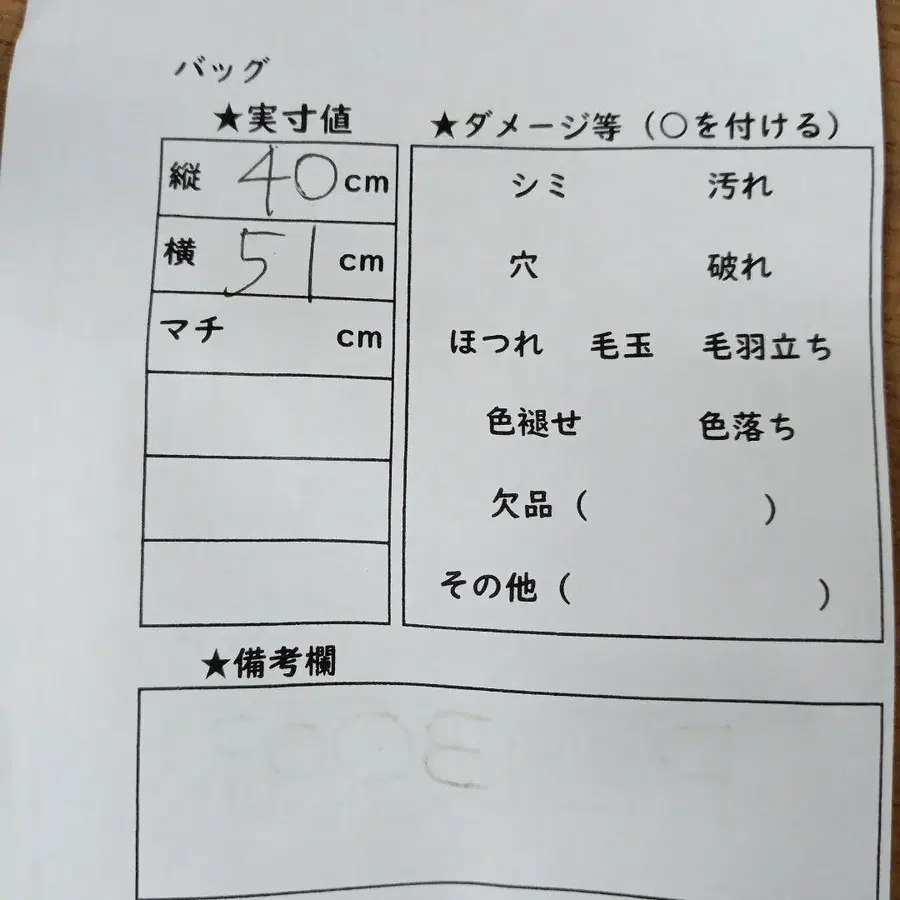 バッグ
★実寸値
縦 40cm
横 51 cm
マチ cm
★ダメージ等（○を付ける）
シミ 汚れ
穴 破れ
ほつれ 毛玉 毛羽立ち
色褪せ 色落ち
欠品（ ）
その他（ ）
★備考欄